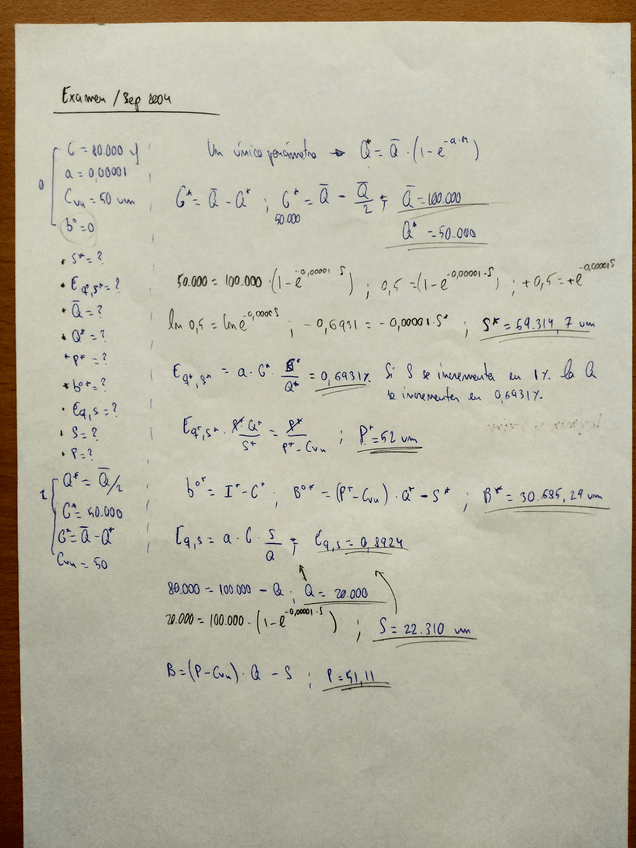 Examen / Sep 2004
0
G = 80.000 y
a = 0,00001
Cvu = 50 um
b° = 0
• S* = ?
• Eq*,s* = ?
• Q̄ = ?
• Q* = ?
• P* = ?
• b°* = ?
• Eq,s = ?
• S = ?
• P = ?
1
Q* = Q̄/2
G* = 50.000
G* = Q̄ - Q*
Cvu = 50
Un único parámetro → Q* = Q̄ · (1 - e^-a·M)
G* = Q̄ - Q* ; G* = Q̄ - Q̄/2 ; Q̄ = 100.000
50.000
Q* = 50.000
50.000 = 100.000 · (1 - e^-0,00001·S) ; 0,5 = (1 - e^-0,00001·S) ; +0,5 = +e^-0,00001S
ln 0,5 = ln e^-0,00001S ; -0,6931 = -0,00001·S* ; S* = 69.314,7 um
Eq*,s* = a · G* · S*/Q* = 0,6931% Si S se incrementa en 1% la Q
se incrementa en 0,6931%.
Eq*,s* · P* Q*/S* = P*/P* - Cvu ; P* = 52 um
b°* = I* - C* ; B°* = (P* - Cvu) · Q* - S* ; B* = 30.685,29 um
Eq,s = a · G · S/Q ; Eq,s = 0,8924
80.000 = 100.000 - Q ; Q = 20.000
20.000 = 100.000 · (1 - e^-0,00001·S) ; S = 22.310 um
B = (P - Cvu) · Q - S ; P = 51,11